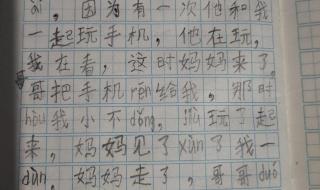 ài，因为有一次他和我
一起玩手机，他在玩，
我在看，这时妈妈来了，
哥把手机rēn给我。那时
hòu我小不dǒng，jiù玩了起
来，妈妈见了xùn了我一
dùn。妈妈走了，哥哥duó